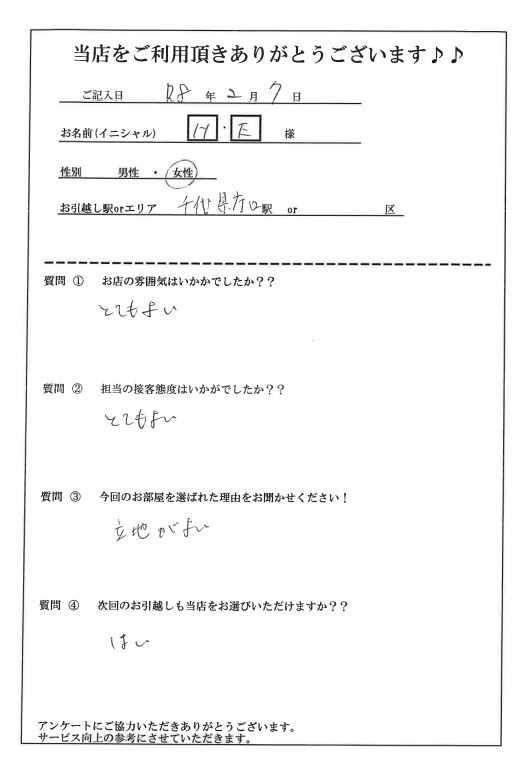 当店をご利用頂きありがとうございます♪♪
ご記入日 R8 年 2 月 7 日
お名前(イニシャル) H・E 様
性別 男性 ・ 女性
お引越し駅orエリア 千代県庁口駅 or 区
質問 ① お店の雰囲気はいかかでしたか??
とてもよい
質問 ② 担当の接客態度はいかがでしたか??
とてもよい
質問 ③ 今回のお部屋を選ばれた理由をお聞かせください!
立地がよい
質問 ④ 次回のお引越しも当店をお選びいただけますか??
はい
アンケートにご協力いただきありがとうございます。
サービス向上の参考にさせていただきます。